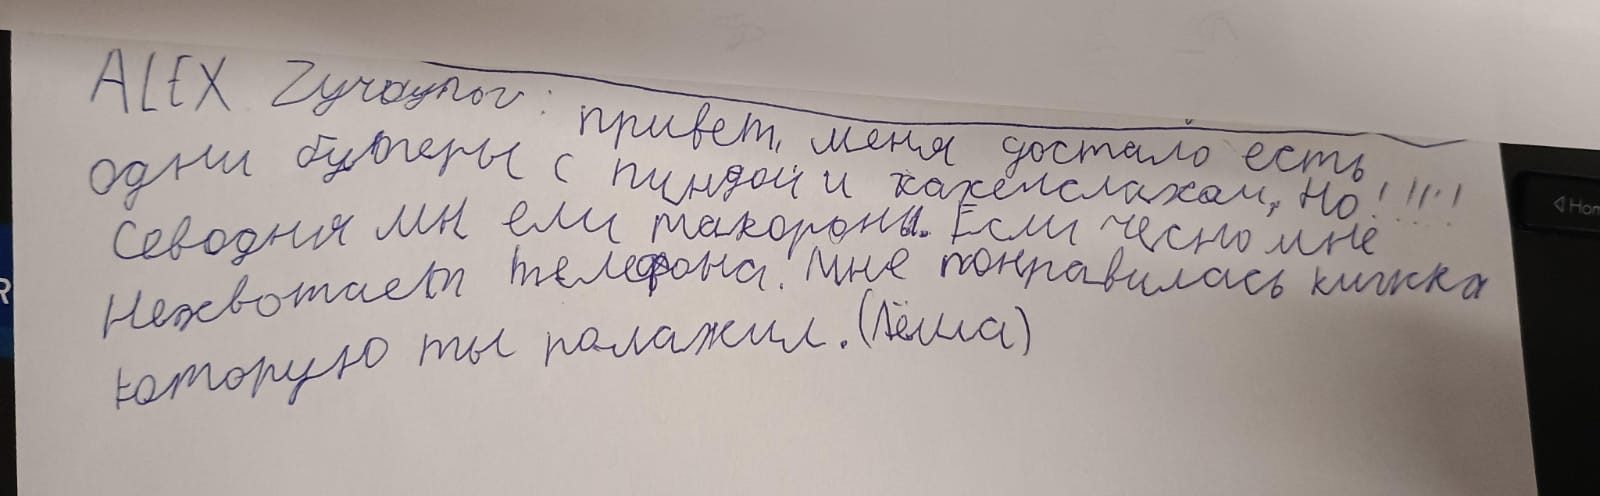 ALEX
привет, меня достало есть
одни бутеры с и Но!!!!!
Севодня мы ели макороны. Если чесно мне
Нехвотает телефона. Мне понравилась книжка
которую ты полажил. (Лёша)
Hom
R